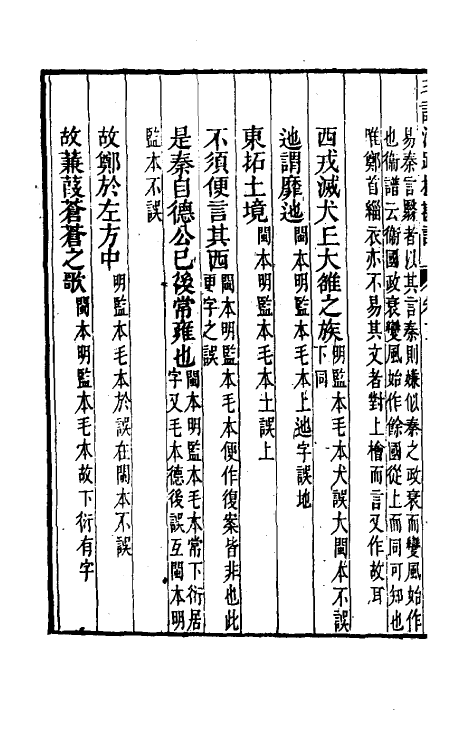 易秦言翳者以其言秦則嫌似秦之政衰而變風始作
也衞譜云衞國政衰變風始作餘國從上而同可知也
唯鄭首緇衣亦不易其文者對上檜而言又作故耳
西戎滅犬丘大雒之族明監本毛本犬誤大閩本不誤
下同
迆謂靡迆閩本明監本毛本上迆字誤地
東拓土境閩本明監本毛本土誤上
不須便言其西閩本明監本毛本便作復案皆非也此
更字之誤
是秦自德公已後常雍也閩本明監本毛本常下衍居
字又毛本德後誤互閩本明
監本不誤
故鄭於左方中明監本毛本於誤在閩本不誤
故蒹葭蒼蒼之歌閩本明監本毛本故下衍有字